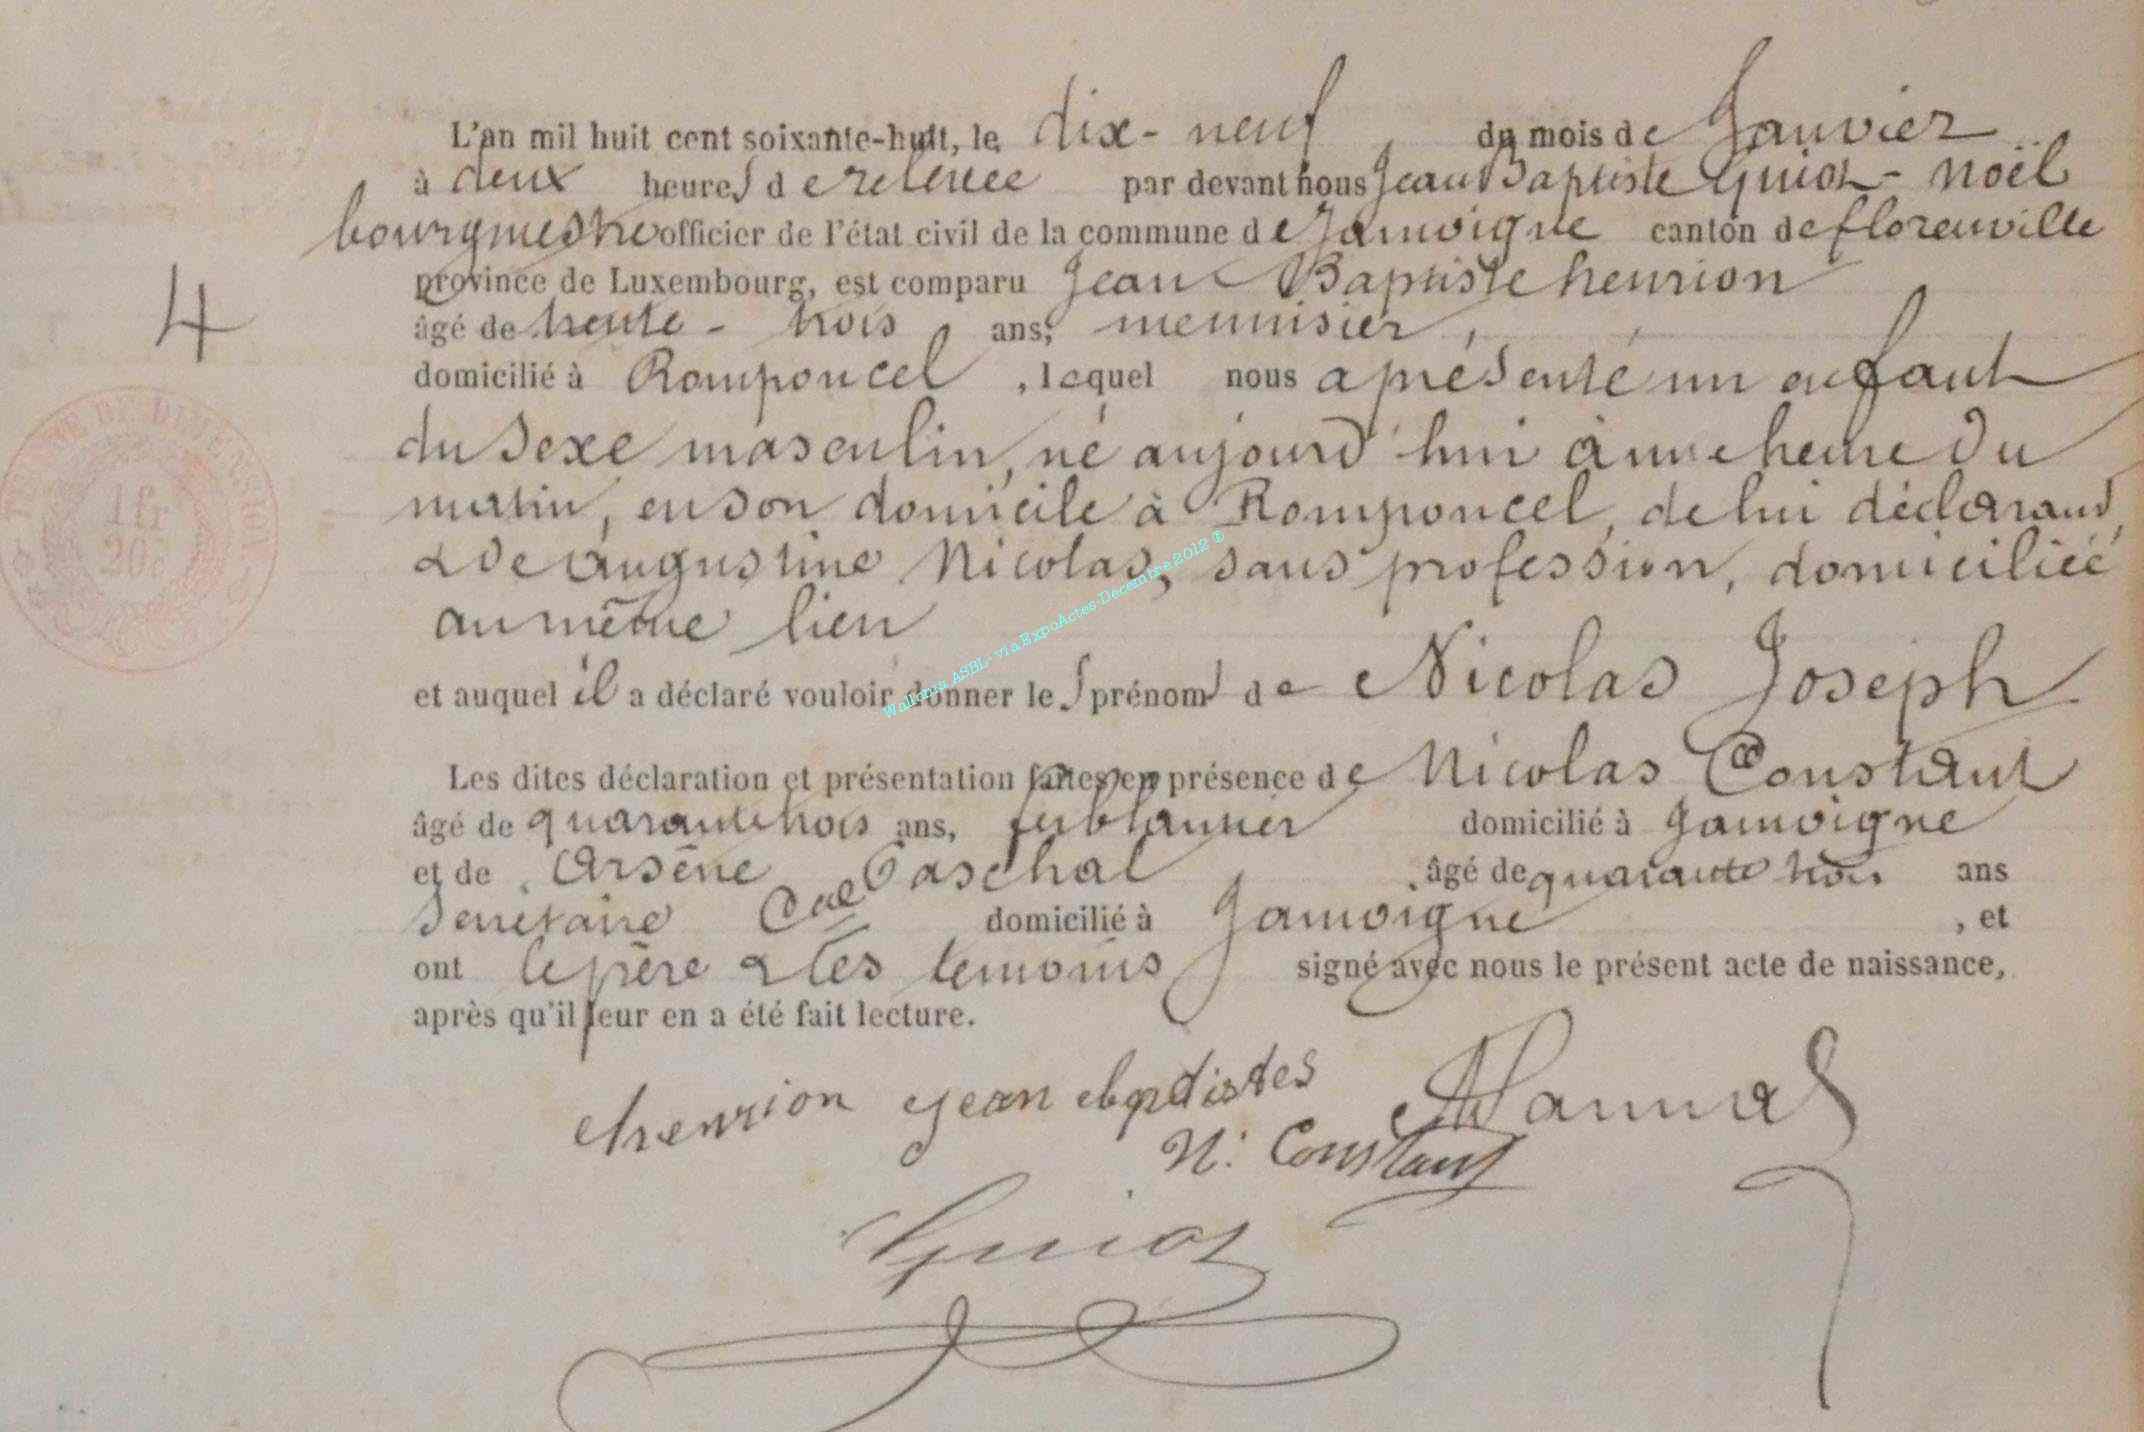 L'an mil huit cent soixante-huit, le dix-neuf du mois de Janvier
à deux heures de relevée par devant nous Jean Baptiste Guiot-Noël
bourgmestre officier de l'état civil de la commune de Jamoigne canton de florenville
province de Luxembourg, est comparu Jean Baptiste henrion
âgé de trente-trois ans, menuisier,
4
domicilié à Romponcel, lequel nous a présenté un enfant
du sexe masculin, né aujourd'hui à une heure du
matin, en son domicile à Romponcel, de lui déclarant,
1 fr
20 c
& de Augustine Nicolas, sans profession, domiciliée
au même lieu
Wallonia ASBL- via ExpoActes-Décembre 2012 ©
et auquel il a déclaré vouloir donner les prénoms de Nicolas Joseph
Les dites déclaration et présentation faites en présence de Nicolas Constant
âgé de quarante trois ans, ferblantier domicilié à Jamoigne
et de Arsène Paschal, âgé de quarante trois ans
Secrétaire Cal domicilié à Jamoigne, et
ont le père & les temoins signé avec nous le présent acte de naissance,
après qu'il leur en a été fait lecture.
henrion jean
N. Constant
Guiot